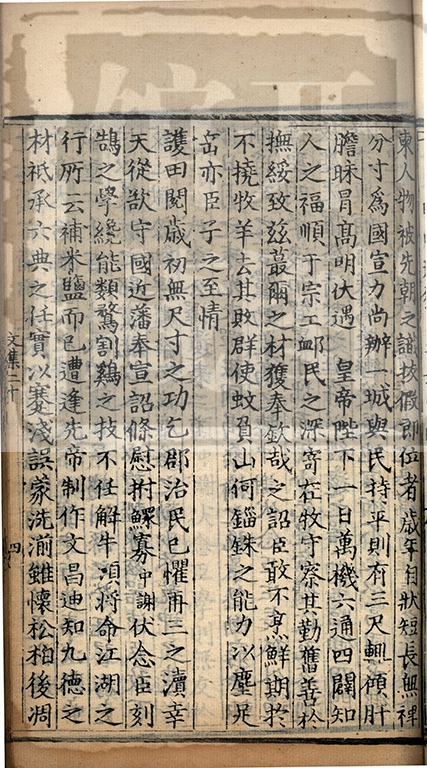 東人物被先朝之諠拔假郎位者歲年自狀短長無裨
分寸爲國宣力尚辦一城與民持平則有三尺輒傾肝
膽昧冐髙明伏遇 皇帝陛下一日萬機六通四闢知
人之福順于宗工卹民之深寄在牧守察其勤舊善於
撫綏致兹蕞爾之材獲奉欽哉之詔臣敢不烹鮮期於
不撓牧羊去其敗群使蚊負山何錙銖之能力以塵足
岳亦臣子之至情
護田閱歳初無尺寸之功乞郡治民已懼再三之瀆幸
天從欲守國近藩奉宣詔條慰拊鰥寡中謝伏念臣刻
鵠之學纔能類騖割鷄之技不任解牛頃將命江湖之
行所云補米鹽而已遭逢先帝制作文昌迪知九德之
材祗承六典之任實以蹇淺誤蒙洗湔雖懷松柏後凋
文集二十
四